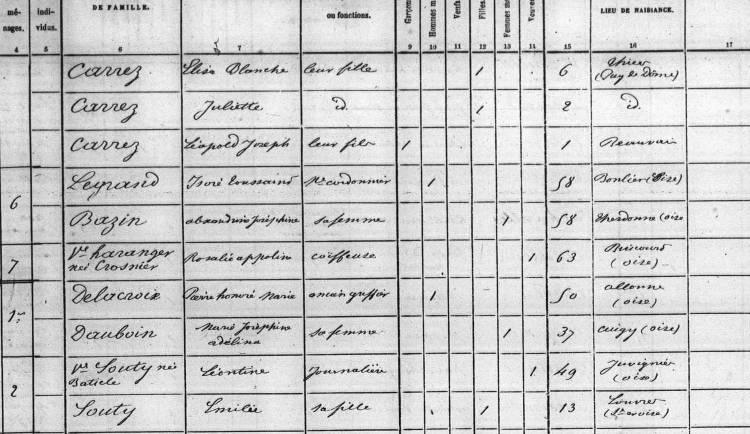 mé-
nages.
indi-
vidus.
DE FAMILLE.
ou fonctions.
Garçons
Hommes ma
Veufs
Filles.
Femmes ma
Veuves
LIEU DE NAISSANCE.
4 5 6 7 9 10 11 12 13 14 15 16 17
Carrez Elisa Blanche leur fille 1 6 Thiers
(Puy de Dôme)
Carrez Juliette id. 1 2 id.
Carrez Léopold Joseph leur fils 1 1 Beauvais
6 Legrand Toussaint cordonnier 1 58 Bonlier (Oise)
Bazin Joséphine sa femme 1 58 therdonne (oise
7 Ve haranger
née Crosnier Rosalie appoline coiffeuse 1 63 Ricourt
(oise)
1er Delacroix Pierre honoré Marie ancien greffier 1 50 allonne
(oise)
Dauboin Marie Joséphine
adélina sa femme 1 37 cuigy (oise)
2 Ve Souty née
Baticle Léontine Journalière 1 49 Juvignies
(oise)
Souty Emilie sa fille 1 13 Louvres
(Sne et oise)